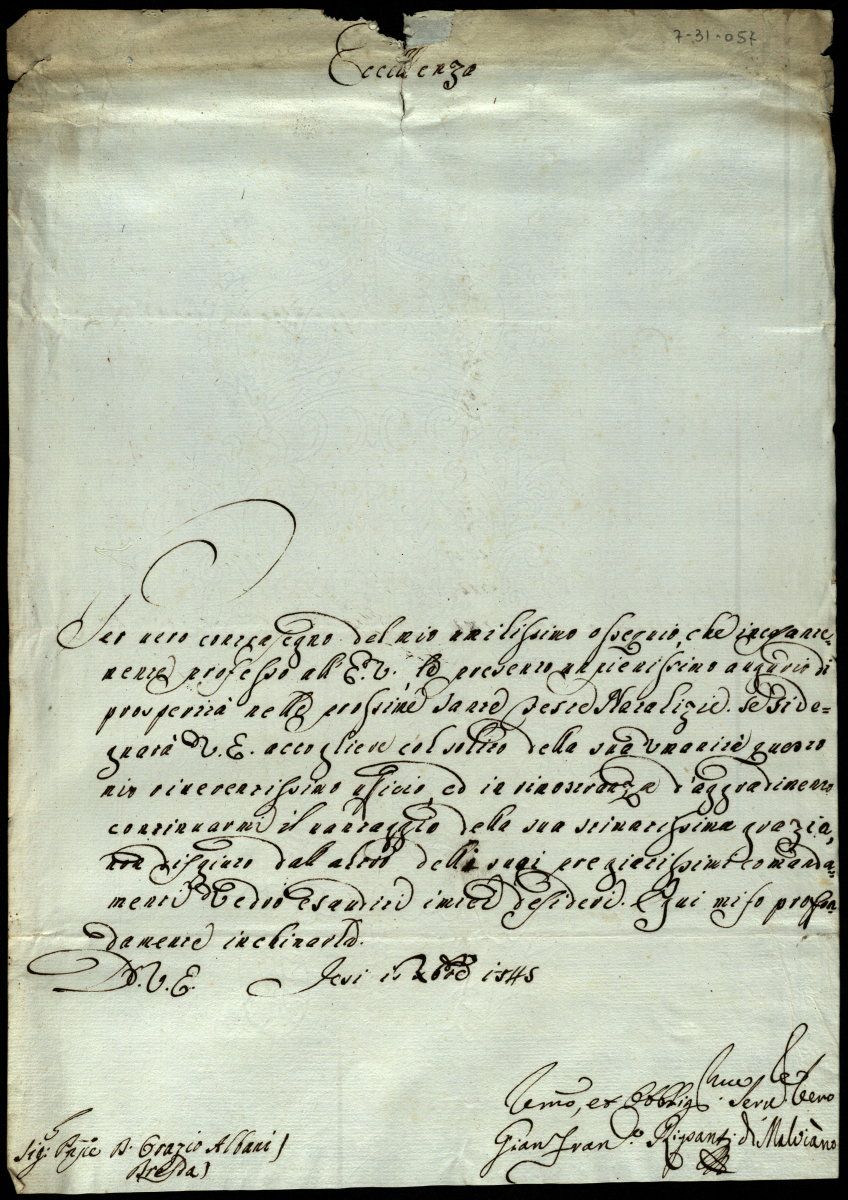 7-31-057
Eccellenza
Per vero contrasegno del mio umilissimo ossequio, che incessante-
mente professo all' E. V., le presento un pienissimo augurio di
prosperità nelle prossime sante Feste Natalizie. Se si de-
gnarà V. E. accogliere col solito della sua umanità questo
mio riverentissimo uficio, ed in rimostranza d'aggradimento
continuarmi il vantaggio della sua stimatissima grazia,
non disgiunto dall' altro delli suoi pregiatissimi comanda-
menti vedrò esauditi i miei desideri. E qui mi fo profon-
damente inchinarla.
D. V. E. Jesi Xbre
Sig: Pnpe D. Orazio Albani
Umo, et Obblig Serv. Vero
Gian Fran.co Ripanti di Malviano